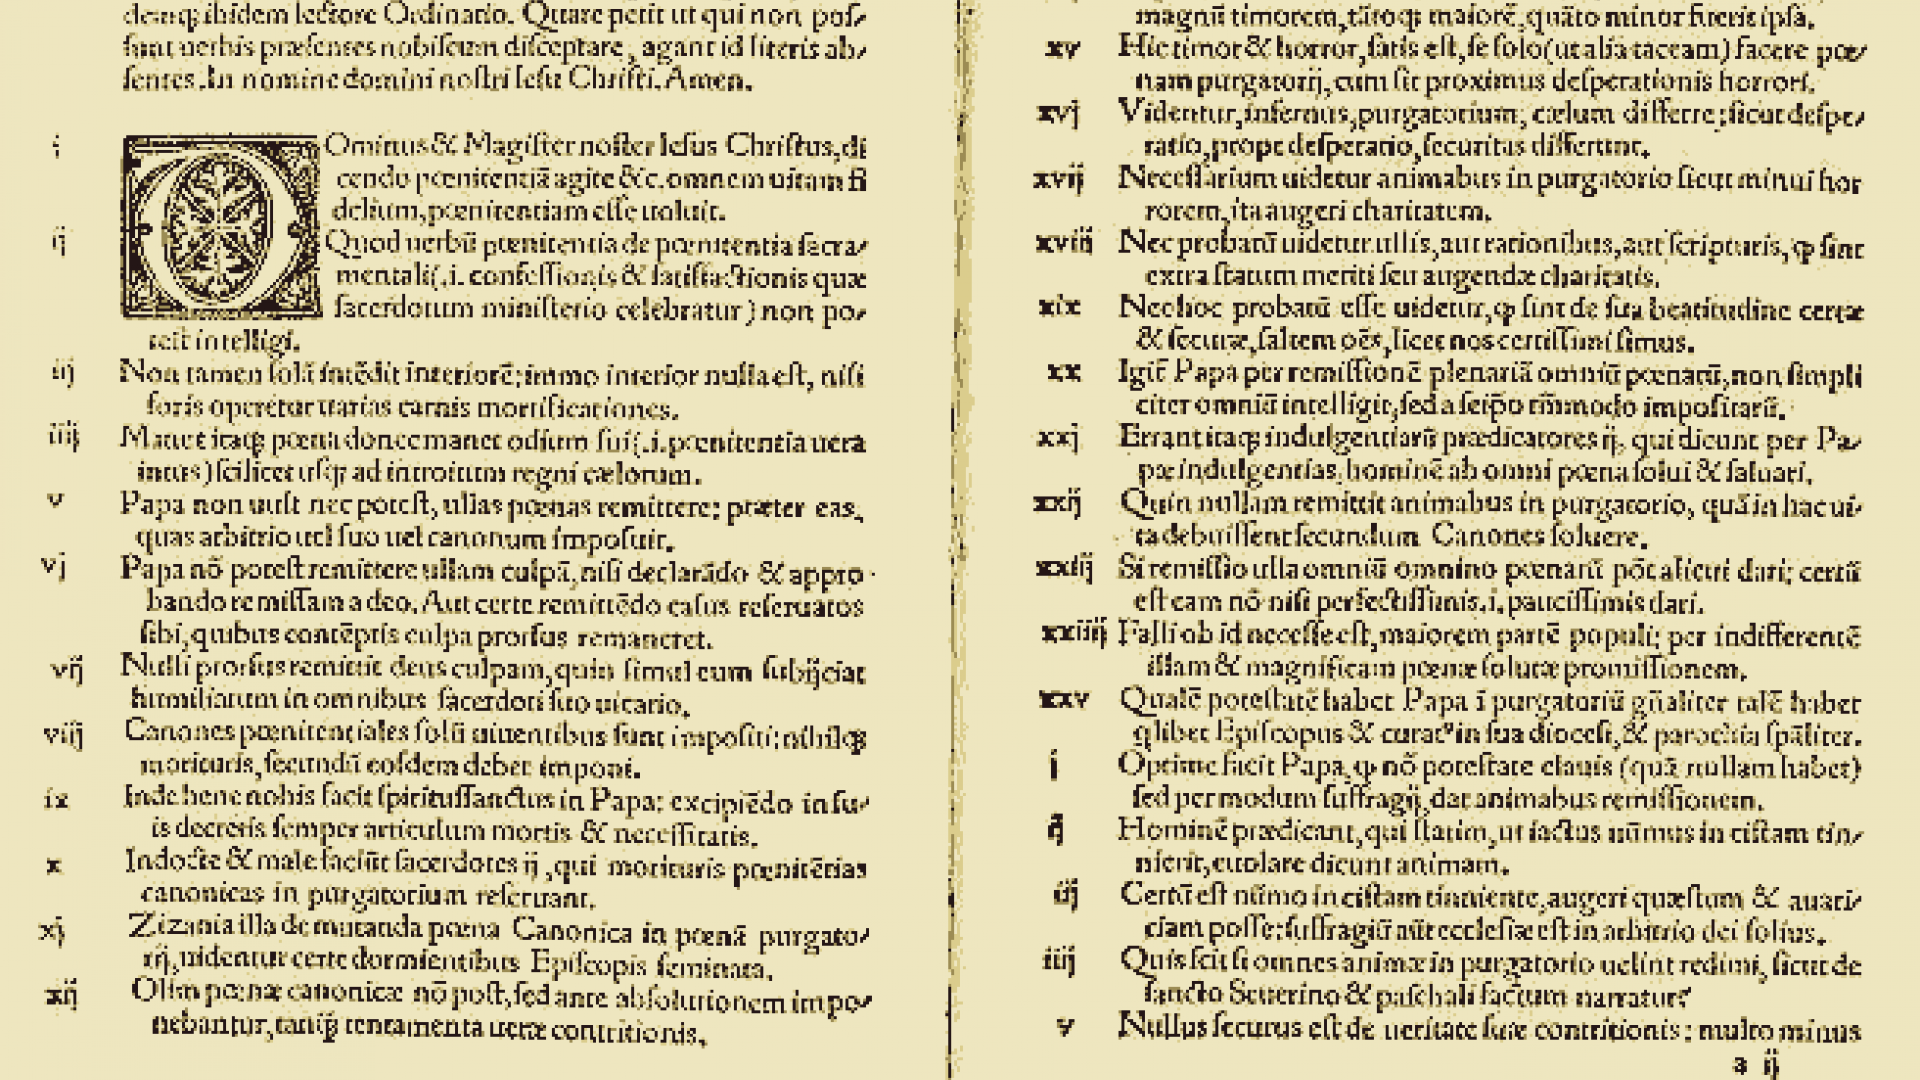 denq; ibidem lectore Ordinario. Quare petit ut qui non pos⸗
sunt uerbis præsentes nobiscum disceptare, agant id literis ab⸗
sentes. In nomine domini nostri Iesu Christi. Amen.
i DOminus & Magister noster Iesus Christus, di
cendo pœnitentiā agite &c. omnem uitam fi
delium, pœnitentiam esse uoluit.
ij Quod uerbū pœnitentia de pœnitentia sacra⸗
mentali(.i. confessionis & satisfactionis quæ
sacerdotum ministerio celebratur) non po⸗
test intelligi.
iij Non tamen solā intēdit interiorē; immo interior nulla est, nisi
foris operetur uarias carnis mortificationes.
iiij Manet itaq; pœna donec manet odium sui(.i. pœnitentia uera
intus) scilicet usq; ad introitum regni cælorum.
v Papa non uult nec potest, ullas pœnas remittere; præter eas,
quas arbitrio uel suo uel canonum imposuit.
vj Papa nō potest remittere ullam culpā, nisi declarādo & appro⸗
bando remissam a deo. Aut certe remittēdo casus reseruatos
sibi, quibus contēptis culpa prorsus remaneret.
vij Nulli prorsus remittit deus culpam, quin simul eum subijciat
humiliatum in omnibus sacerdoti suo uicario.
viij Canones pœnitentiales solū uiuentibus sunt impositi; nihilq;
morituris, secundū eosdem debet imponi.
ix Inde bene nobis facit spiritussanctus in Papa: excipiēdo in su⸗
is decretis semper articulum mortis & necessitatis.
x Indocte & male faciūt sacerdotes ij, qui morituris pœnitētias
canonicas in purgatorium reseruant.
xj Zizania illa de mutanda pœna Canonica in pœnā purgato⸗
rij, uidentur certe dormientibus Episcopis seminata.
xij Olim pœnæ canonicæ nō post, sed ante absolutionem impo⸗
nebantur, tanq̄ tentamenta ueræ contritionis.
magnū timorem, tātoq; maiorē, quāto minor fuerit ipsa.
xv Hic timor & horror, satis est, se solo (ut alia taceam) facere pœ⸗
nam purgatorij, cum sit proximus desperationis horrori.
xvj Videntur, infernus, purgatorium, cælum differre; sicut despe⸗
ratio, prope desperatio, securitas differunt.
xvij Necessarium uidetur animabus in purgatorio sicut minui hor
rorem, ita augeri charitatum.
xviij Nec probatū uidetur ullis, aut rationibus, aut scripturis, ꝙ sint
extra statum meriti seu augendæ charitatis.
xix Nec hoc probatū esse uidetur, ꝙ sint de sua beatitudine certæ
& securæ, saltem oēs, licet nos certissimi simus.
xx Igit̄ Papa per remissionē plenariā omniū pœnarū, non simpli
citer omniū intelligit, sed a seip̄o tm̄modo impositarū.
xxj Errant itaq; indulgentiarū prædicatores ij, qui dicunt per Pa⸗
pæ indulgentias, hominē ab omni pœna solui & saluari.
xxij Quin nullam remittit animabus in purgatorio, quā in hac ui⸗
ta debuissent secundum Canones soluere.
xxiij Si remissio ulla omniū omnino pœnarū pōt alicui dari; certū
est eam nō nisi perfectissimis, .i. paucissimis dari.
xxiiij Falli ob id necesse est, maiorem partē populi; per indifferentē
illam & magnificam pœnæ solutæ promissionem.
xxv Qualē potestatē habet Papa ī purgatoriū gn̄aliter talē habet
q̄libet Episcopus & curatꝰ in sua diocesi, & parochia sp̄aliter.
j Optime facit Papa, ꝙ nō potestate clauis (quā nullam habet)
sed per modum suffragij, dat animabus remissionem.
ij Hominē prædicant, qui statim, ut iactus nūmus in cistam tin⸗
nierit, euolare dicunt animam.
iij Certū est nūmo in cistam tinniente, augeri quæstum & auari⸗
ciam posse; suffragiū aūt ecclesiæ est in arbitrio dei solius.
iiij Quis scit si omnes animæ in purgatorio uelint redimi, sicut de
sancto Seuerino & paschali factum narratur?
v Nullus securus est de ueritate suæ contritionis; multo minus
a ij